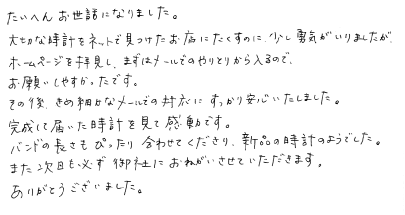 たいへんお世話になりました。
大切な時計をネットで見つけたお店にたくすのに、少し勇気がいりましたが、
ホームページを拝見し、まずはメールでのやりとりから入るので、
お願いしやすかったです。
その後、きめ細かなメールでの対応にすっかり安心いたしました。
完成して届いた時計を見て感動です。
バンドの長さもぴったり合わせてくださり、新品の時計のようでした。
また次回も必ず御社におねがいさせていただきます。
ありがとうございました。